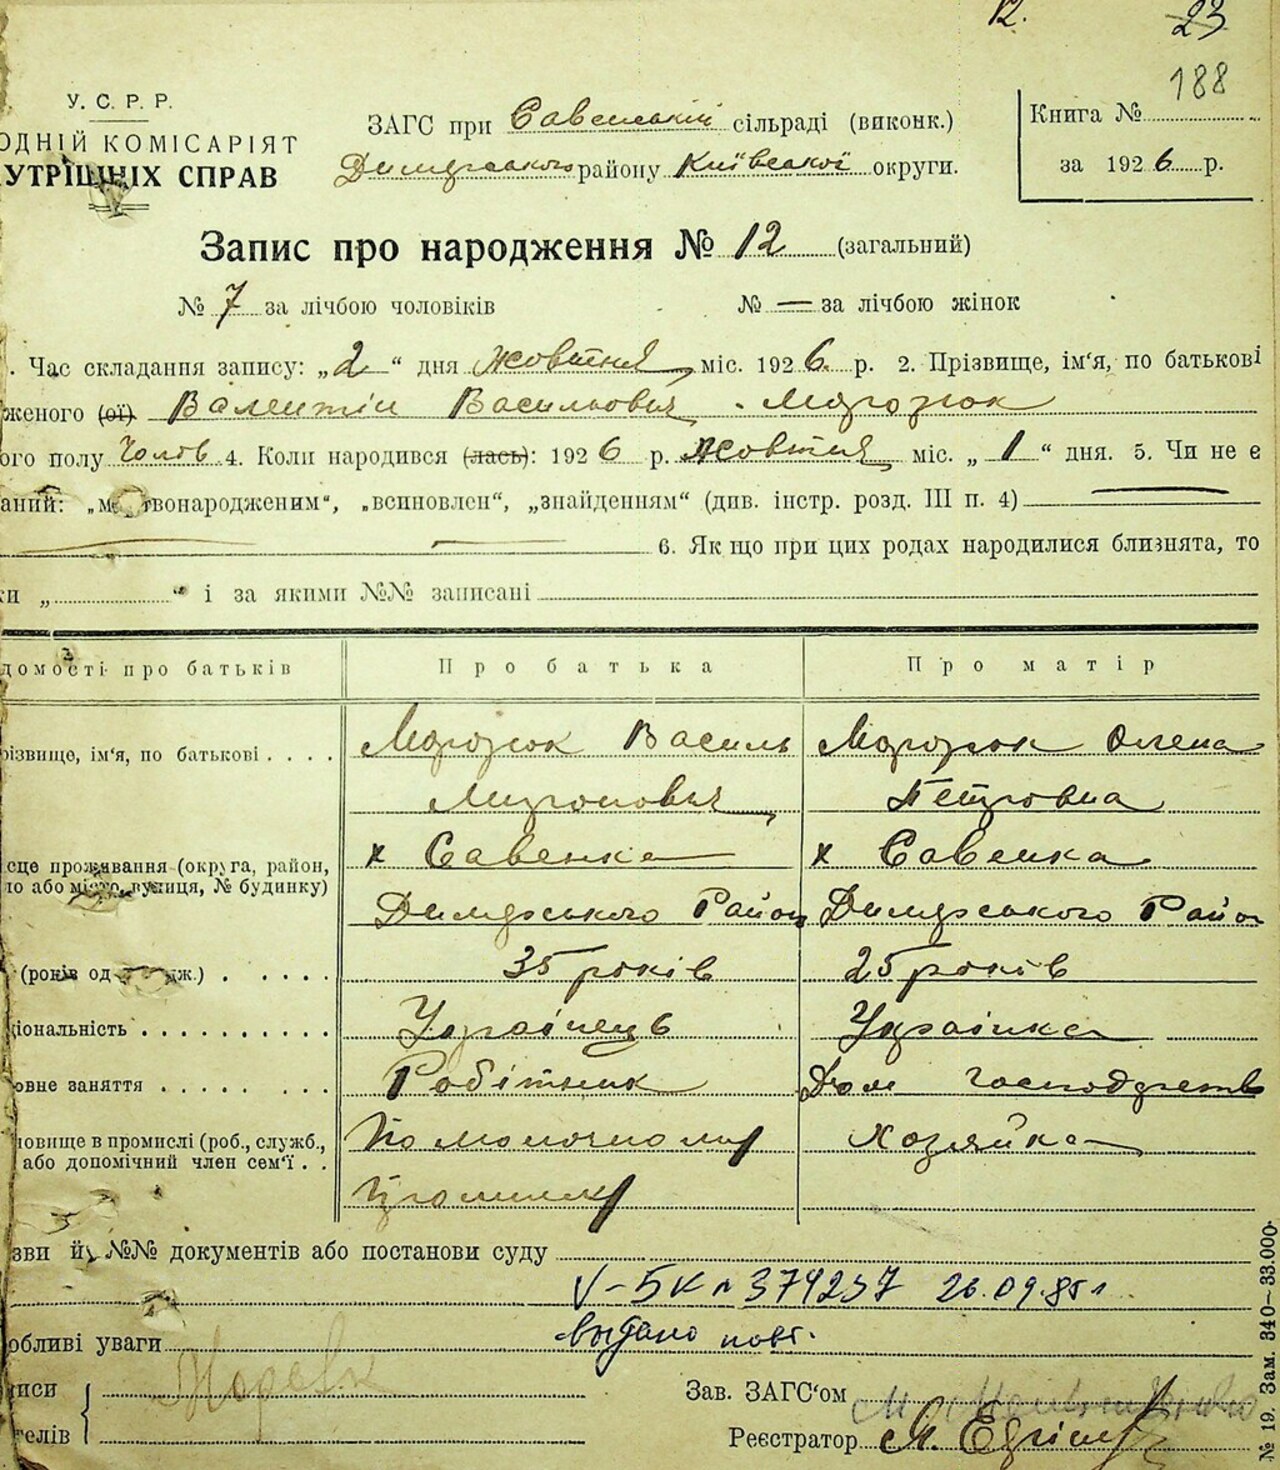 12. 23
188
У. С. Р. Р.
ОДНІЙ КОМІСАРІЯТ
УТРІШНІХ СПРАВ
ЗАГС при Савенській сільраді (виконк.)
Димерського району Київської округи.
Книга №
за 1926 р.
Запис про народження № 12 (загальний)
№ 7 за лічбою чоловіків № — за лічбою жінок
. Час складання запису: „2“ дня жовтня міс. 1926 р. 2. Прізвище, ім‘я, по батькові
женого (ої) Валентін Васильович Морозюк
ого полу чолов 4. Коли народився (лась): 1926 р. жовтня міс. „1“ дня. 5. Чи не є
аний: „мертвонародженим“, „всиновлен“, „знайденням“ (див. інстр. розд. III п. 4)
6. Якщо при цих родах народилися близнята, то
ки „ “ і за якими №№ записані
домості про батьків Про батька Про матір
різвище, ім‘я, по батькові Морозюк Василь Морозюк Олена
Миронович Петровна
сце проживання (округа, район, х Савенка х Савенка
ло або місто, вулиця, № будинку)
Димерського Район Димерського Район
(років од дж.) 35 років 25 років
ціональність Українець Українка
овне заняття Робітник Дом господрств
новище в промислі (роб., служб., По молочному хозяйка
або допомічний член сем‘ї
Промислу
зви й №№ документів або постанови суду
V-БК № 374237 26.09.85 г
обливі уваги выдано повт.
писи Зав. ЗАГС‘ом
телів Реєстратор
№ 19. Зам. 340—33.000.